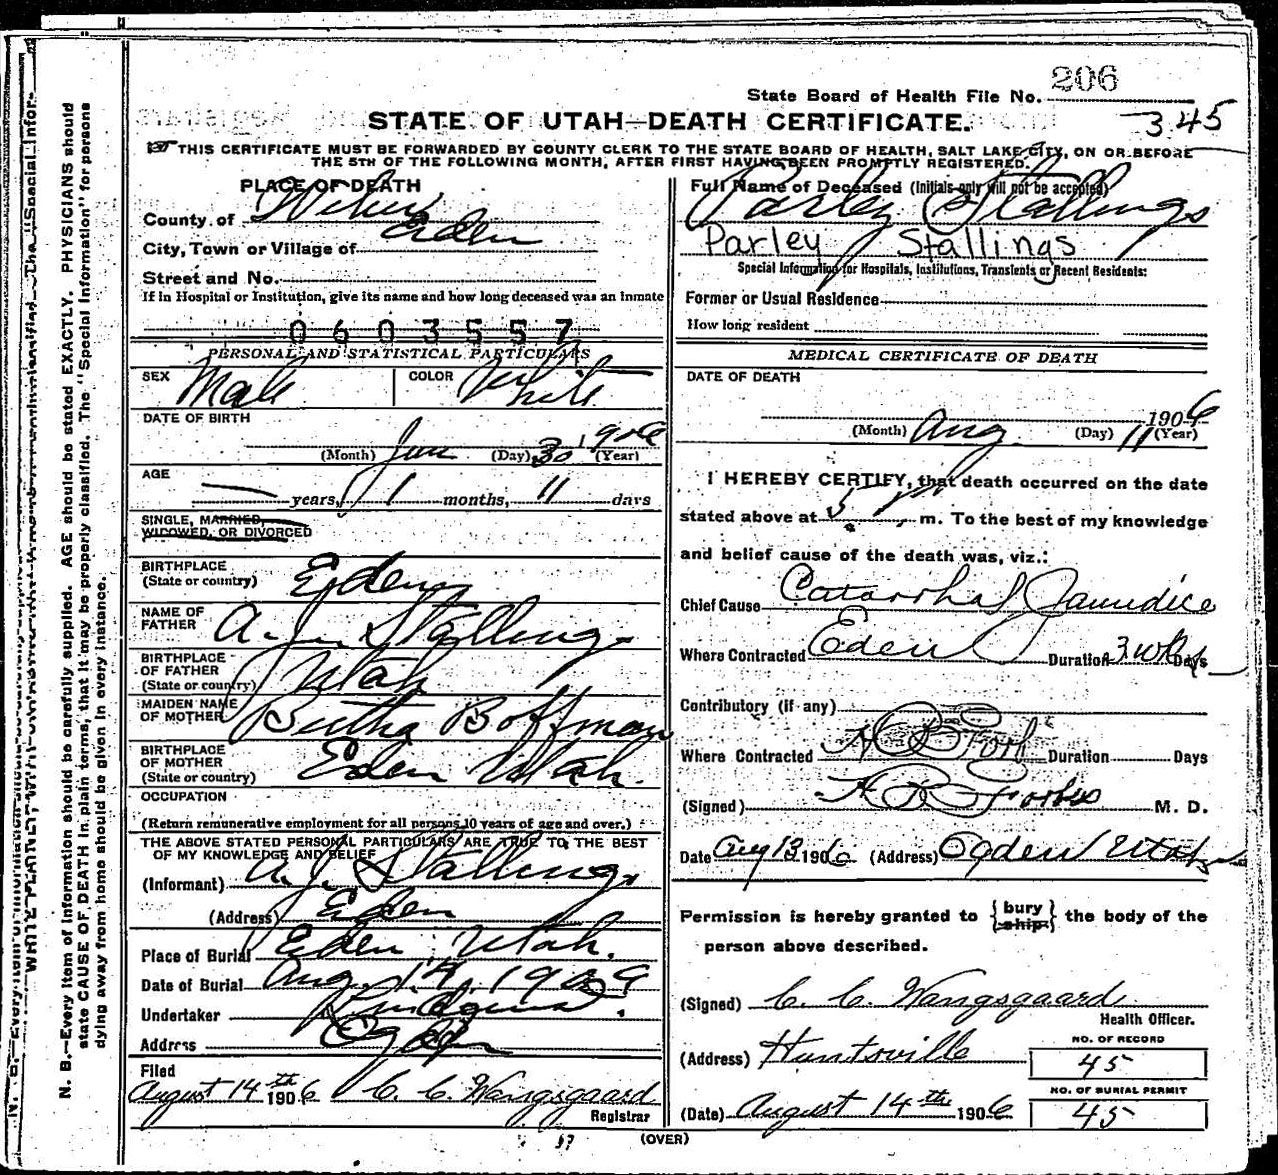 206
State Board of Health File No.
345
STATE OF UTAH—DEATH CERTIFICATE.
THIS CERTIFICATE MUST BE FORWARDED BY COUNTY CLERK TO THE STATE BOARD OF HEALTH, SALT LAKE CITY, ON OR BEFORE
THE 5TH OF THE FOLLOWING MONTH, AFTER FIRST HAVING BEEN PROMPTLY REGISTERED.
PLACE OF DEATH
County of Weber
City, Town or Village of Eden
Street and No.
If in Hospital or Institution, give its name and how long deceased was an inmate
0603557
PERSONAL AND STATISTICAL PARTICULARS
SEX Male COLOR White
DATE OF BIRTH
(Month) Jun (Day) 30 1906 (Year)
AGE
years, 1 months, 11 days
SINGLE, MARRIED,
WIDOWED, OR DIVORCED
BIRTHPLACE
(State or country) Eden
NAME OF
FATHER A. J. Stallings
BIRTHPLACE
OF FATHER
(State or country) Utah
MAIDEN NAME
OF MOTHER Bertha Boffman
BIRTHPLACE
OF MOTHER
(State or country) Eden Utah.
OCCUPATION
(Return remunerative employment for all persons 10 years of age and over.)
THE ABOVE STATED PERSONAL PARTICULARS ARE TRUE TO THE BEST
OF MY KNOWLEDGE AND BELIEF
(Informant) A. J. Stallings
(Address) Eden
Place of Burial Eden, Utah.
Date of Burial Aug. 14, 190
Undertaker
Address Ogden
Filed
August 14th 1906 C. C. Wangsgaard
Registrar
Full Name of Deceased (Initials only will not be accepted)
Parley Stallings
Parley Stallings
Special Information for Hospitals, Institutions, Transients or Recent Residents:
Former or Usual Residence
How long resident
MEDICAL CERTIFICATE OF DEATH
DATE OF DEATH
1906
(Month) Aug. (Day) 11 (Year)
I HEREBY CERTIFY, that death occurred on the date
stated above at 5 P. m. To the best of my knowledge
and belief cause of the death was, viz.:
Chief Cause Catarrhal Jaundice
Where Contracted Eden Duration 3 wks Days
Contributory (if any)
Where Contracted Duration Days
(Signed) H B Forbes M. D.
Date Aug 13 1906 (Address) Ogden Utah
Permission is hereby granted to {bury ship} the body of the
person above described.
(Signed) C. C. Wangsgaard
Health Officer.
(Address) Huntsville
NO. OF RECORD
45
NO. OF BURIAL PERMIT
45
(Date) August 14th 1906
(OVER)
N. B.—Every item of information should be carefully supplied. AGE should be stated EXACTLY. PHYSICIANS should
state CAUSE OF DEATH in plain terms, that it may be properly classified. The "Special Information" for persons
dying away from home should be given in every instance.